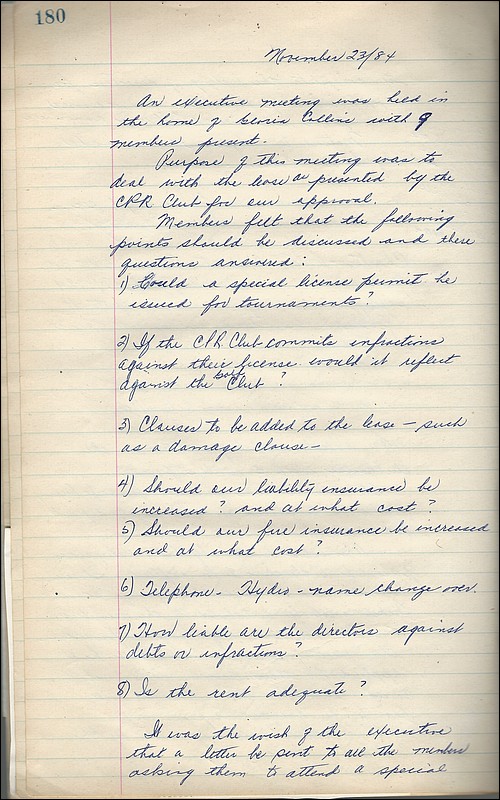 180
November 23/84
An executive meeting was held in
the home of Gloria Collins with 9
members present.
Purpose of this meeting was to
deal with the lease as presented by the
CPR Club for our approval.
Members felt that the following
points should be discussed and these
questions answered:
1) Could a special license permit be
issued for tournaments?
2) If the CPR Club commits infractions
against their license would it reflect
against the Golf Club?
3) Clauses to be added to the lease - such
as a damage clause -
4) Should our liability insurance be
increased? and at what cost?
5) Should our fire insurance be increased
and at what cost?
6) Telephone - Hydro - name change over.
7) How liable are the directors against
debts or infractions?
8) Is the rent adequate?
It was the wish of the executive
that a letter be sent to all the members
asking them to attend a special